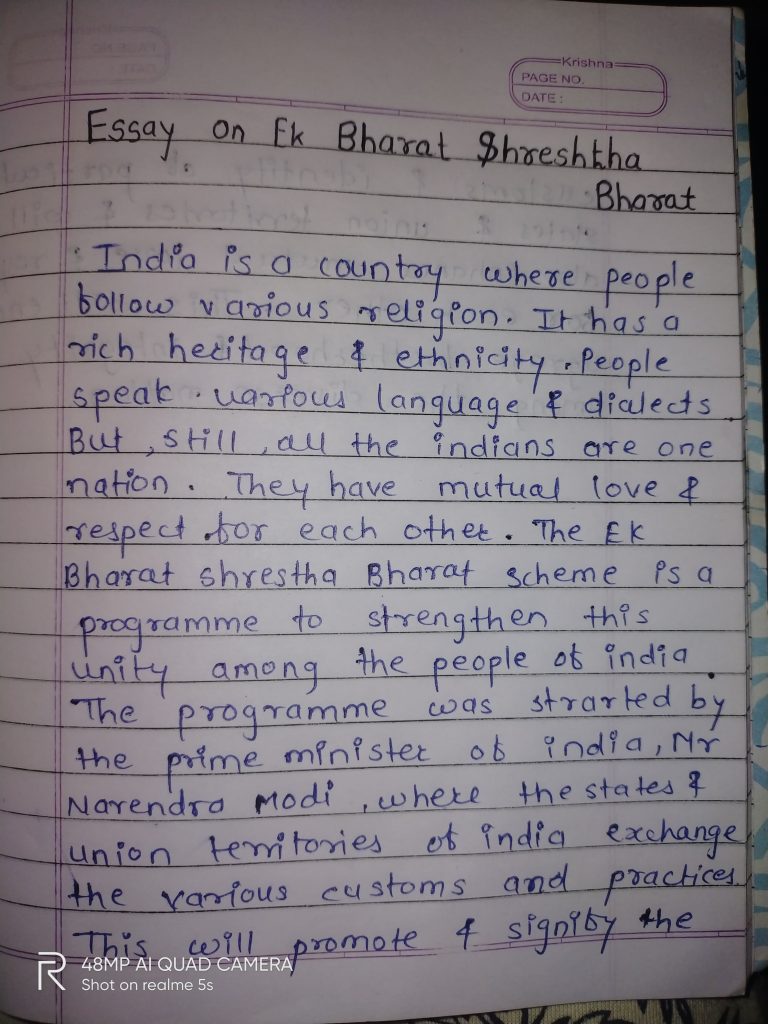 Krishna
PAGE NO.
DATE :
Essay on Ek Bharat Shreshtha
Bharat
India is a country where people
follow various religion. It has a
rich heritage & ethnicity. People
speak various language & dialects.
But, still, all the indians are one
nation. They have mutual love &
respect for each other. The EK
Bharat shrestha Bharat scheme is a
programme to strengthen this
unity among the people of india.
The programme was strarted by
the prime minister of india, Mr
Narendra Modi, where the states &
union territories of india exchange
the various customs and practices.
This will promote & signify the
R 48MP AI QUAD CAMERA
Shot on realme 5s